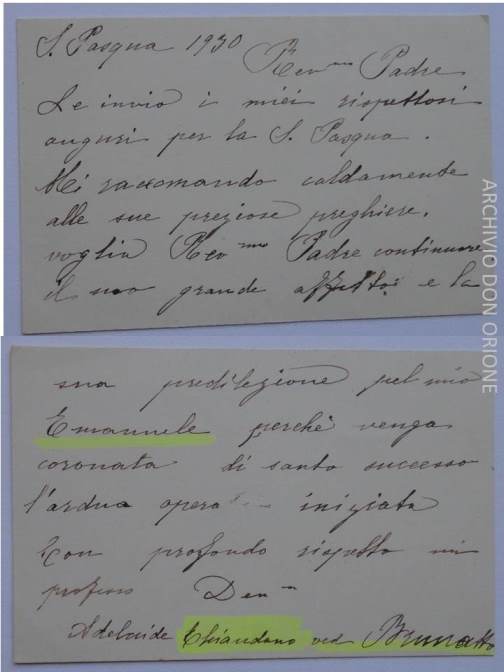 S. Pasqua 1930
Rev.mo Padre
Le invio i miei rispettosi
auguri per la S. Pasqua.
Mi raccomando caldamente
alle sue preziose preghiere.
voglia Rev.mo Padre continuare
il suo grande affetto e la
sua predilezione pel mio
Emanuele perchè venga
coronata di santo successo
l'ardua opera iniziata
Con profondo rispetto mi
professo Dev.a
Adelaide Chiandano ved Brunatto
ARCHIVIO DON ORIONE